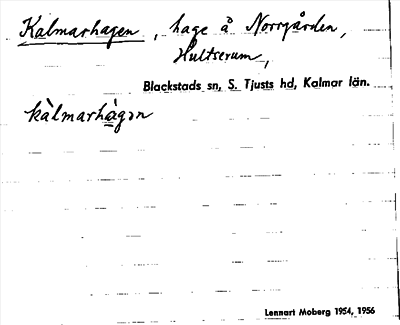 Kalmarhagen, hage å Norrgården,
Hultserum,
Blackstads sn, S. Tjusts hd, Kalmar län.
kàlmarhàgən
Lennart Moberg 1954, 1956